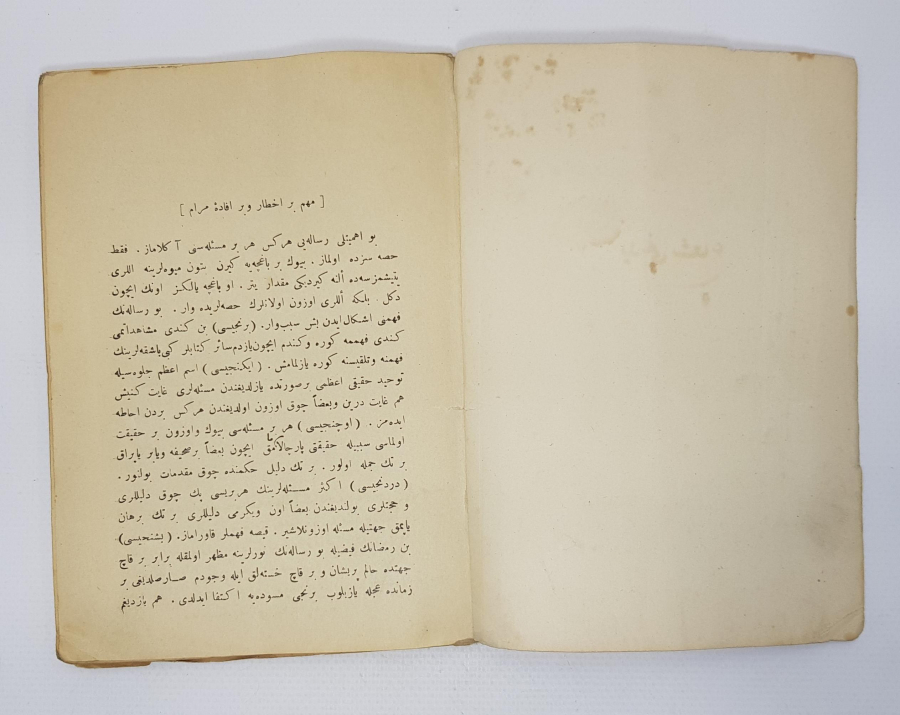 [ مهم بر اخطار وبر افادۀ مرام ]
بو اهميتلى رساله‌يى هركس هر بر مسئله‌سنى آ كلاماز . فقط
حصه سزده اولماز . بيوك بر باغچه‌يه كيرن بتون ميوه‌لرينه اللرى
يتيشمزسه‌ده ألنه كيرديكى مقدار يتر . او باغچه يالكز اونك ايچون
دكل بلكه أللرى اوزون اولانلرك حصه‌لريده وار . بو رساله‌نك
فهمنى اشكال ايدن بش سبب وار. (برنجيسى) بن كندى مشاهداتمى
كندى فهممه كوره وكندم ايچون يازدم سائر كتابلر كبى باشقه‌لرينك
فهمنه وتلقيسنه كوره يازلمامش . (ايكنجيسى) اسم اعظم جلوه‌سيله
توحيد حقيقى اعظمى برصورتده يازلديغندن مسئله‌لرى غايت كنيش
هم غايت درين وبعضاً چوق اوزون اولديغندن هركس بردن احاطه
ايده‌مز . (اوچنجيسى) هر بر مسئله‌سى بيوك واوزون بر حقيقت
اولماسى سببيله حقيقتى پارچالامامق ايچون بعضاً بر صحيفه ويابر ياپراق
بر تك جمله اولور . بر تك دليل حكمنده چوق مقدمات بولنور .
(دردنجيسى) اكثر مسئله‌لرينك هربريسى پك چوق دليللرى
و حجتلرى بولنديغندن بعضاً اون ويكرمى دليللرى بر تك برهان
ياپمق جهتيله مسئله اوزونلاشير . قيصه فهملر قاورا‌ماز. (بشنجيسى)
بن رمضانك فيضيله بو رساله‌نك نورلرينه مظهر اولمقله برابر بر قاچ
جهتده حالم پريشان و بر قاچ خسته‌لق ايله وجودم صارصلديغى بر
زمانده عجله يازيلوب برنجى مسوده‌يه اكتفا ايدلدى . هم يازديغم